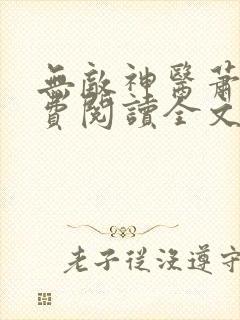 無敵神醫蕭
費閱讀全文
老子從沒遵守